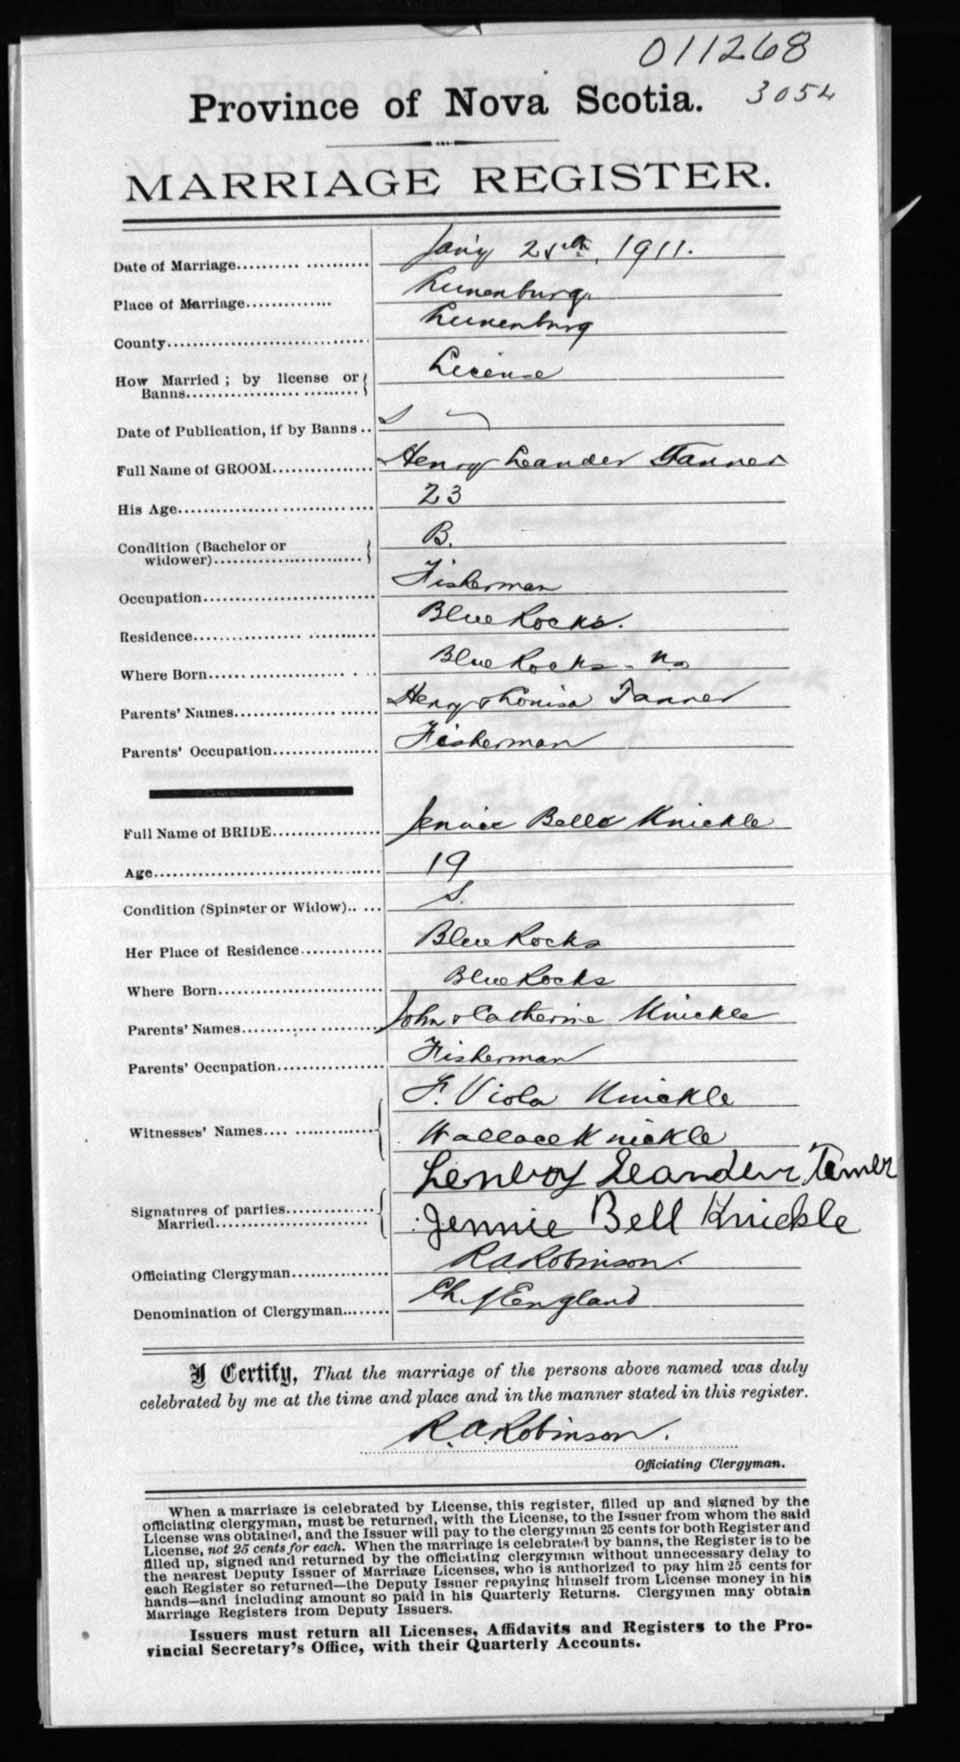 011268
Province of Nova Scotia. 3054
MARRIAGE REGISTER.
Date of Marriage.......... Jan'y 25th, 1911.
Place of Marriage.............. Lunenburg.
County.................................. Lunenburg
How Married ; by license or License
Banns..........................
Date of Publication, if by Banns ..
Full Name of GROOM................ Henry Leander Tanner
His Age.................................. 23
Condition (Bachelor or B.
widower)..........................
Occupation.............................. Fisherman
Residence............................... Blue Rocks.
Where Born.............................. Blue Rocks - N.S
Parents' Names......................... Henry & Louisa Tanner
Parents' Occupation.................. Fisherman
Full Name of BRIDE.................. Jennie Belle Knickle
Age........................................ 19
Condition (Spinster or Widow)....... S.
Her Place of Residence.............. Blue Rocks
Where Born.............................. Blue Rocks
Parents' Names......................... John & Catherine Knickle
Parents' Occupation.................. Fisherman
F. Viola Knickle
Witnesses' Names....................
Wallace Knickle
Leander Tanner
Signatures of parties..............
Married....................... Jennie Bell Knickle
Officiating Clergyman................ R A Robinson.
Denomination of Clergyman........ Ch. of England
I Certify, That the marriage of the persons above named was duly
celebrated by me at the time and place and in the manner stated in this register.
R. A. Robinson.
Officiating Clergyman.
When a marriage is celebrated by License, this register, filled up and signed by the
officiating clergyman, must be returned, with the License, to the Issuer from whom the said
License was obtained, and the Issuer will pay to the clergyman 25 cents for both Register and
License, not 25 cents for each. When the marriage is celebrated by banns, the Register is to be
filled up, signed and returned by the officiating clergyman without unnecessary delay to
the nearest Deputy Issuer of Marriage Licenses, who is authorized to pay him 25 cents for
each Register so returned—the Deputy Issuer repaying himself from License money in his
hands—and including amount so paid in his Quarterly Returns. Clergymen may obtain
Marriage Registers from Deputy Issuers.
Issuers must return all Licenses, Affidavits and Registers to the Pro-
vincial Secretary's Office, with their Quarterly Accounts.